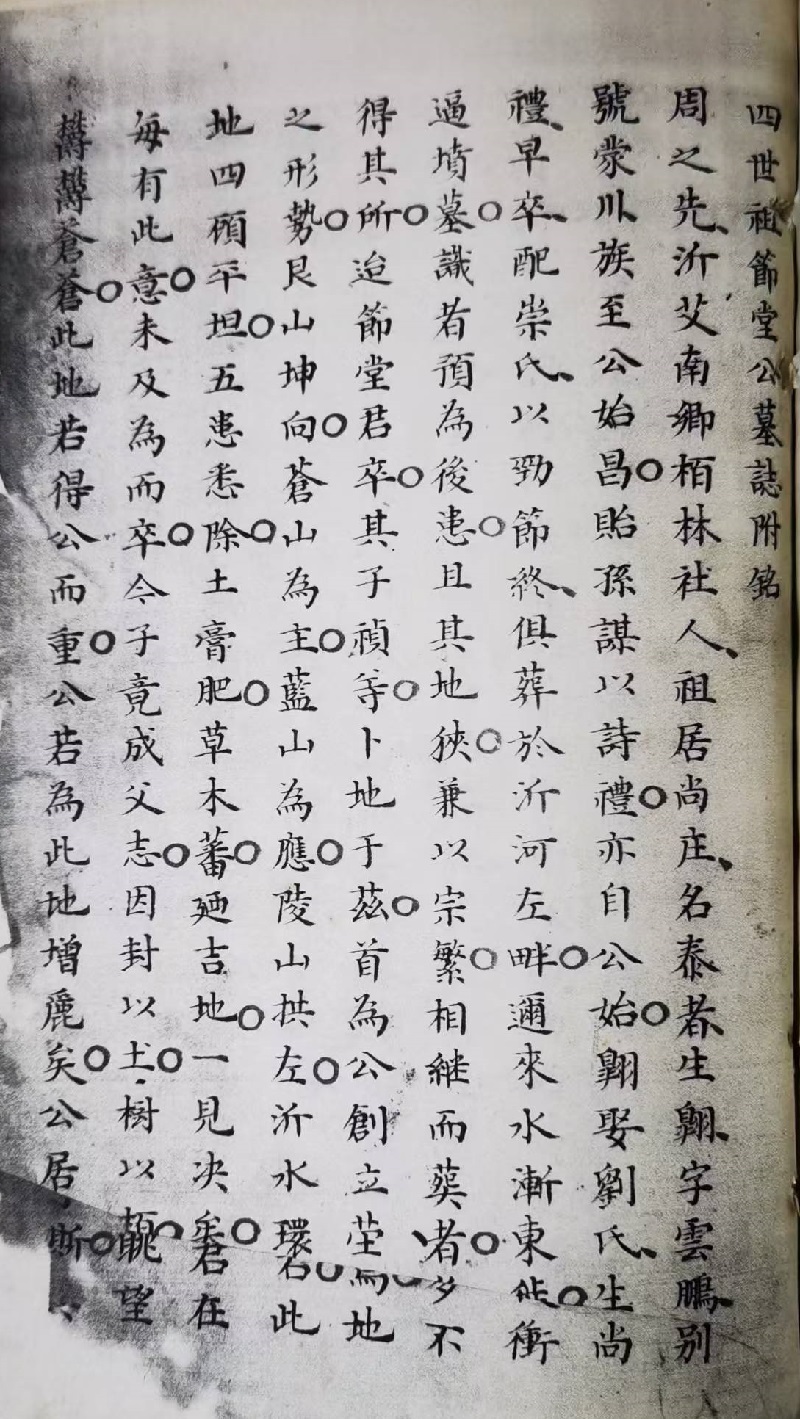 四世祖節堂公墓誌附銘
周之先、沂艾南鄉栢林社人、祖居尚庄、名泰者生翺、字雲鵬、别
號蒙川族至公始昌○貽孫謀以詩禮○亦自公始○翺娶劉氏、生尚
禮、早卒、配崇氏、以勁節終、俱葬於沂河左畔○邇來水漸東徙○衝
逼墳墓○識者預為後患○且其地狹○兼以宗繁○相継而葬者○多不
得其所○迨節堂君卒○其子禎等○卜地于茲○首為公創立茔焉地
之形勢○艮山坤向○蒼山為主○藍山為應○陵山拱左○沂水環右○此
地四顧平坦○五患悉除○土膏肥○草木蕃○廼吉地○一見决矣○君在
每有此意○未及為而卒○今子竟成父志○因封以土○樹以○望
蒼蒼○此地若得公而重○公若為此地增麗矣○公居斯○